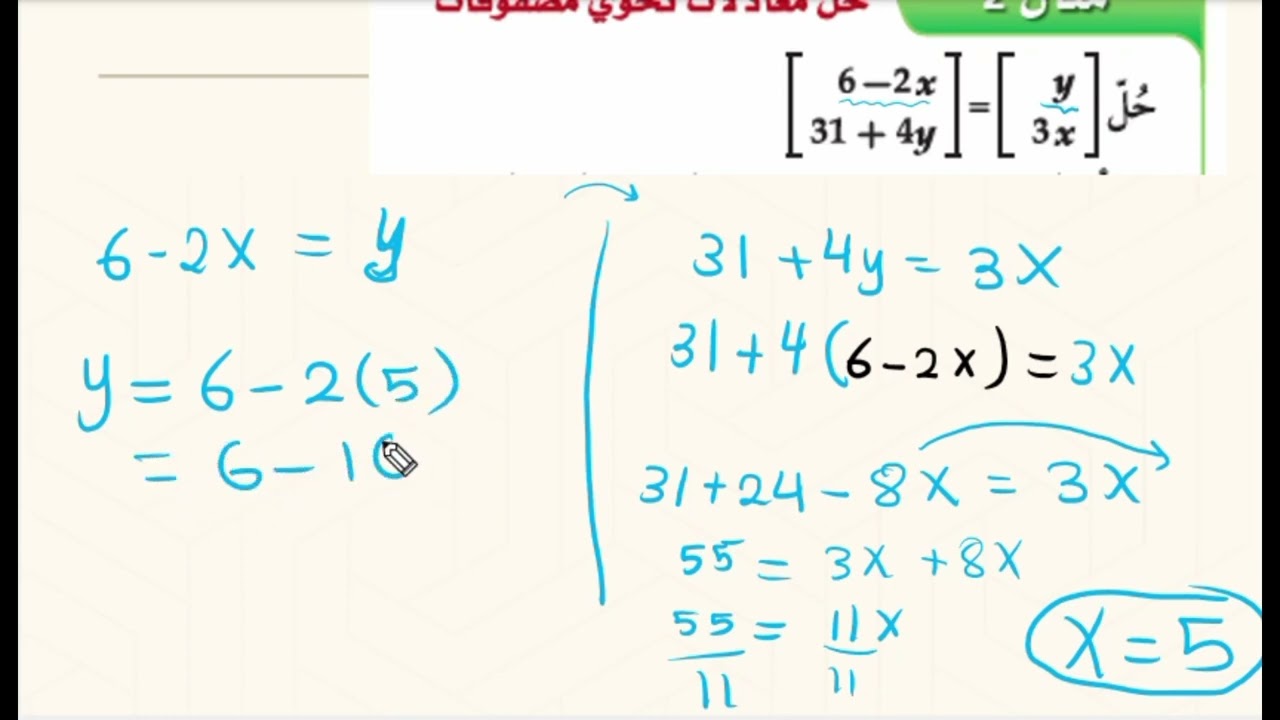 مثال 2 حل معادلات تحوي مصفوفات
حُلّ [y 3x] = [6 – 2x 31 + 4y]
6 - 2x = y
y = 6 - 2(5)
= 6 - 10
31 + 4y = 3x
31 + 4(6 - 2x) = 3x
31 + 24 - 8x = 3x
55 = 3x + 8x
55/11 = 11x/11
x = 5